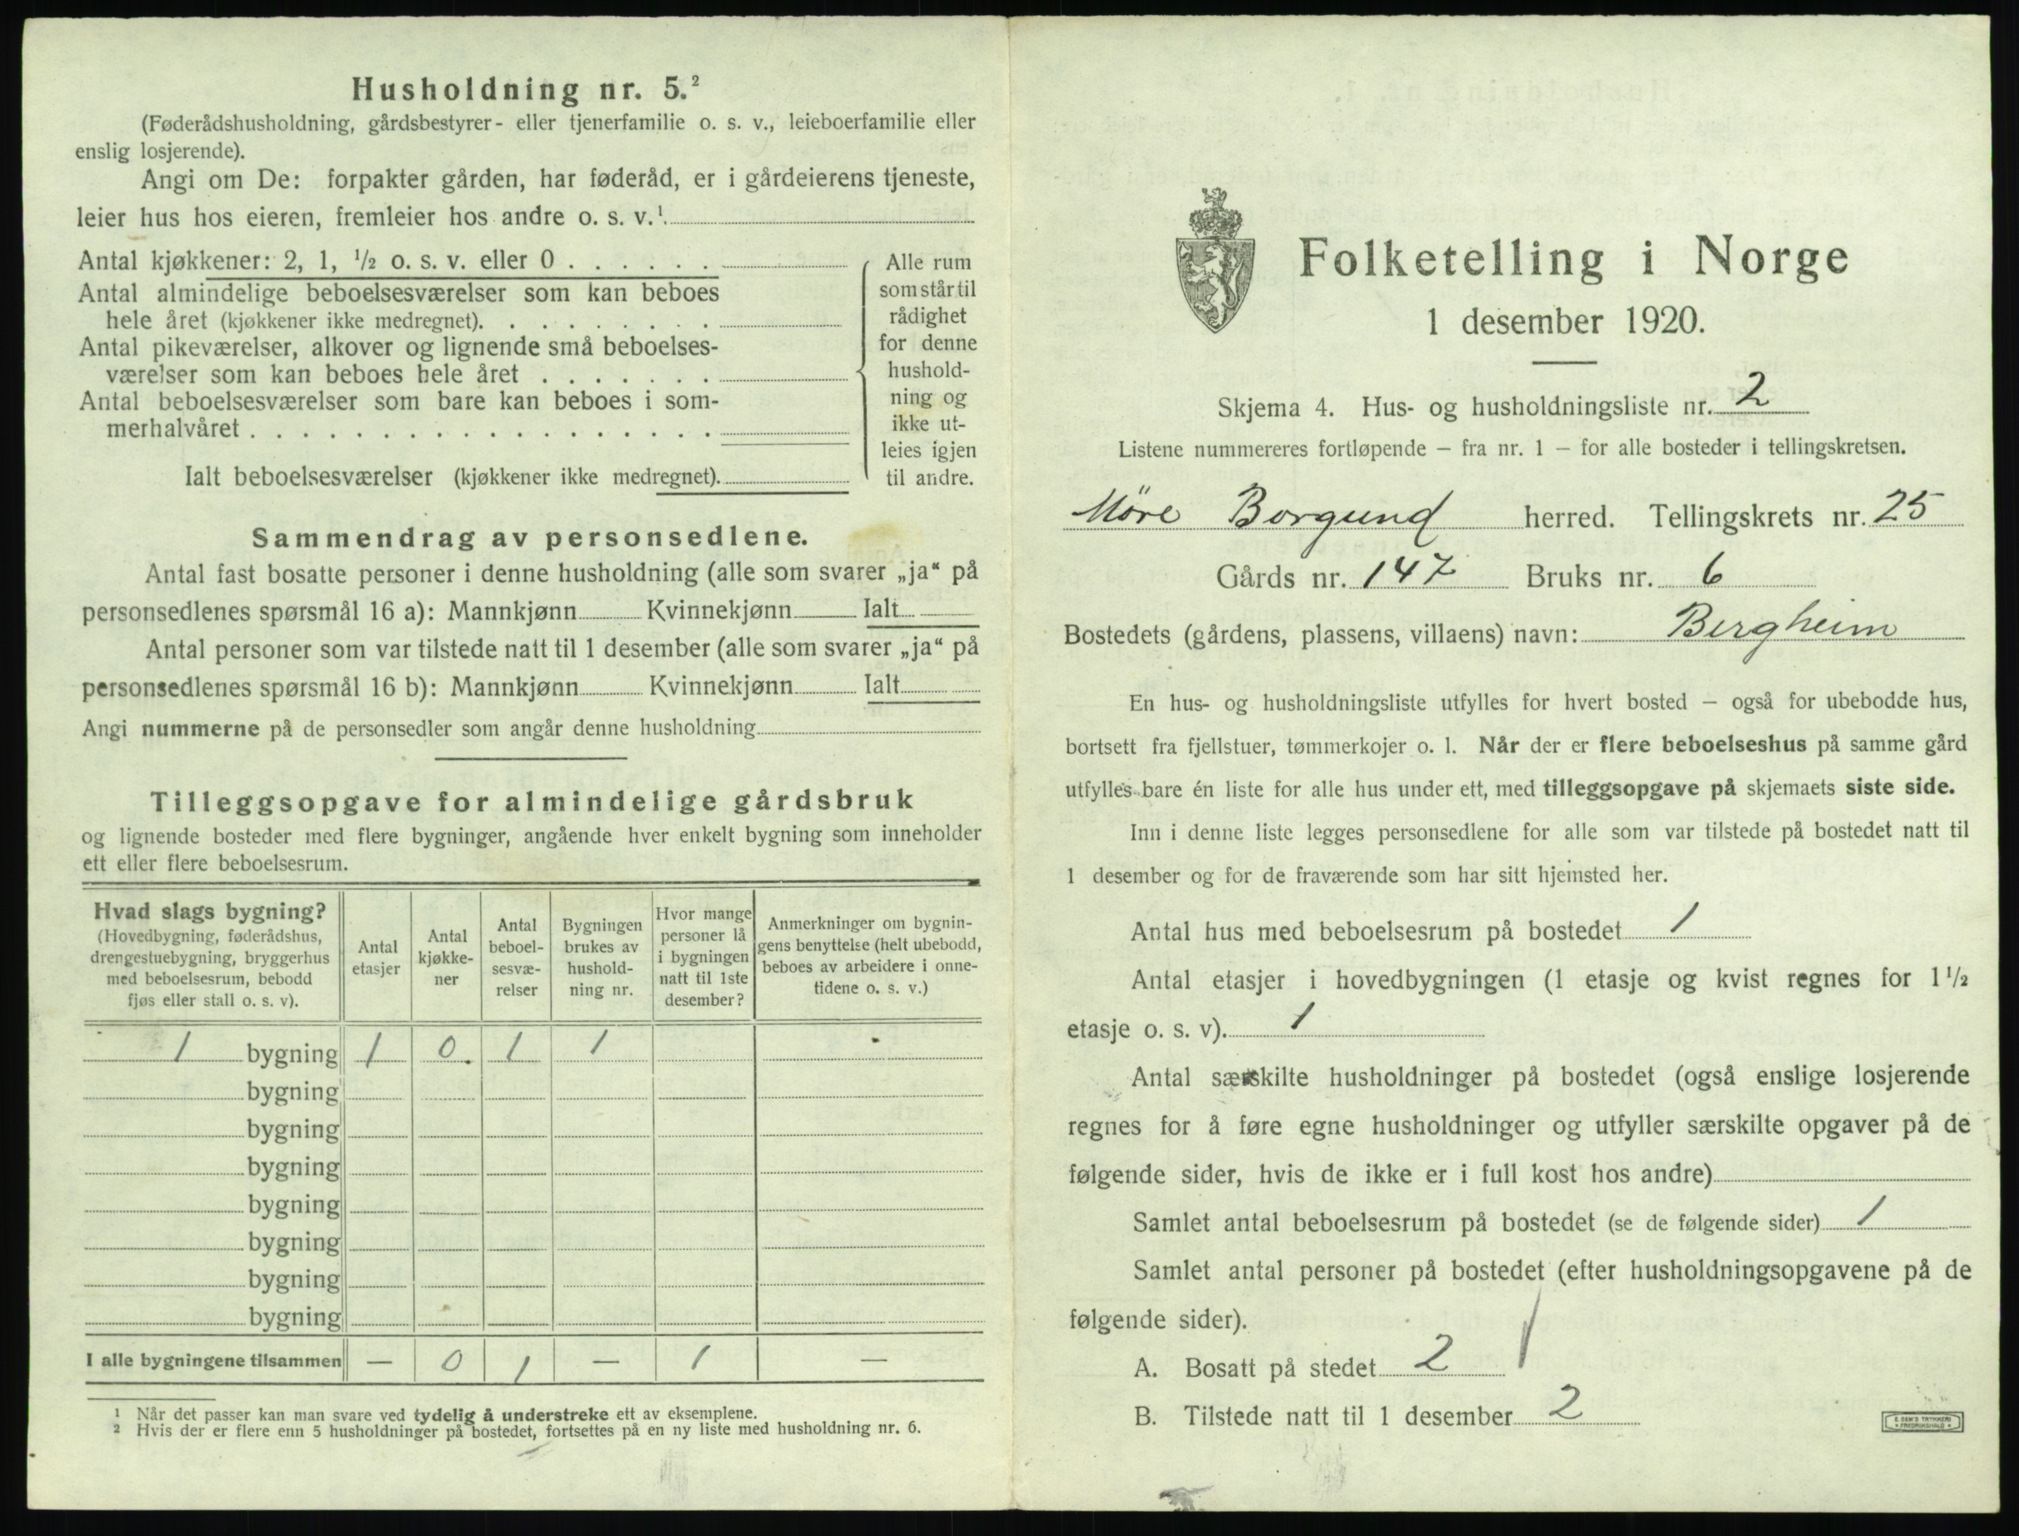 Husholdning nr. 5.²
(Føderådshusholdning, gårdsbestyrer- eller tjenerfamilie o. s. v., leieboerfamilie eller
enslig losjerende).
Angi om De: forpakter gården, har føderåd, er i gårdeierens tjeneste,
leier hus hos eieren, fremleier hos andre o. s. v.¹
Antal kjøkkener: 2, 1, ½ o. s. v. eller 0 . . . . . .
Antal almindelige beboelsesværelser som kan beboes
hele året (kjøkkener ikke medregnet). . . . . . . . .
Antal pikeværelser, alkover og lignende små beboelses-
værelser som kan beboes hele året . . . . . . .
Antal beboelsesværelser som bare kan beboes i som-
merhalvåret . . . . . . . . . . . . . . . . . .
Ialt beboelsesværelser (kjøkkener ikke medregnet).
Alle rum
som står til
rådighet
for denne
hushold-
ning og
ikke ut-
leies igjen
til andre.
Sammendrag av personsedlene.
Antal fast bosatte personer i denne husholdning (alle som svarer „ja“ på
personsedlenes spørsmål 16 a): Mannkjønn Kvinnekjønn Ialt
Antal personer som var tilstede natt til 1 desember (alle som svarer „ja“ på
personsedlenes spørsmål 16 b): Mannkjønn Kvinnekjønn Ialt
Angi nummerne på de personsedler som angår denne husholdning
Tilleggsopgave for almindelige gårdsbruk
og lignende bosteder med flere bygninger, angående hver enkelt bygning som inneholder
ett eller flere beboelsesrum.
Hvad slags bygning?
(Hovedbygning, føderådshus,
drengestuebygning, bryggerhus
med beboelsesrum, bebodd
fjøs eller stall o. s. v).
Antal
etasjer
Antal
kjøkke-
ner
Antal
beboel-
sesvæ-
relser
Bygningen
brukes av
hushold-
ning nr.
Hvor mange
personer lå
i bygningen
natt til 1ste
desember?
Anmerkninger om bygnin-
gens benyttelse (helt ubebodd,
beboes av arbeidere i onne-
tidene o. s. v.)
1 bygning 1 0 1 1
bygning
bygning
bygning
bygning
bygning
bygning
bygning
I alle bygningene tilsammen — 0 1 — 1 —
¹ Når det passer kan man svare ved tydelig å understreke ett av eksemplene.
² Hvis der er flere enn 5 husholdninger på bostedet, fortsettes på en ny liste med husholdning nr. 6.
Folketelling i Norge
1 desember 1920.
Skjema 4. Hus- og husholdningsliste nr. 2
Listene nummereres fortløpende – fra nr. 1 – for alle bosteder i tellingskretsen.
Møre Borgund herred. Tellingskrets nr. 25
Gårds nr. 147 Bruks nr. 6
Bostedets (gårdens, plassens, villaens) navn: Bergheim
En hus- og husholdningsliste utfylles for hvert bosted – også for ubebodde hus,
bortsett fra fjellstuer, tømmerkojer o. l. Når der er flere beboelseshus på samme gård
utfylles bare én liste for alle hus under ett, med tilleggsopgave på skjemaets siste side.
Inn i denne liste legges personsedlene for alle som var tilstede på bostedet natt til
1 desember og for de fraværende som har sitt hjemsted her.
Antal hus med beboelsesrum på bostedet 1
Antal etasjer i hovedbygningen (1 etasje og kvist regnes for 1½
etasje o. s. v). 1
Antal særskilte husholdninger på bostedet (også enslige losjerende
regnes for å føre egne husholdninger og utfyller særskilte opgaver på de
følgende sider, hvis de ikke er i full kost hos andre)
Samlet antal beboelsesrum på bostedet (se de følgende sider) 1
Samlet antal personer på bostedet (efter husholdningsopgavene på de
følgende sider).
A. Bosatt på stedet 2 1
B. Tilstede natt til 1 desember 2
E. SEM'S TRYKKERI
FREDRIKSHALD